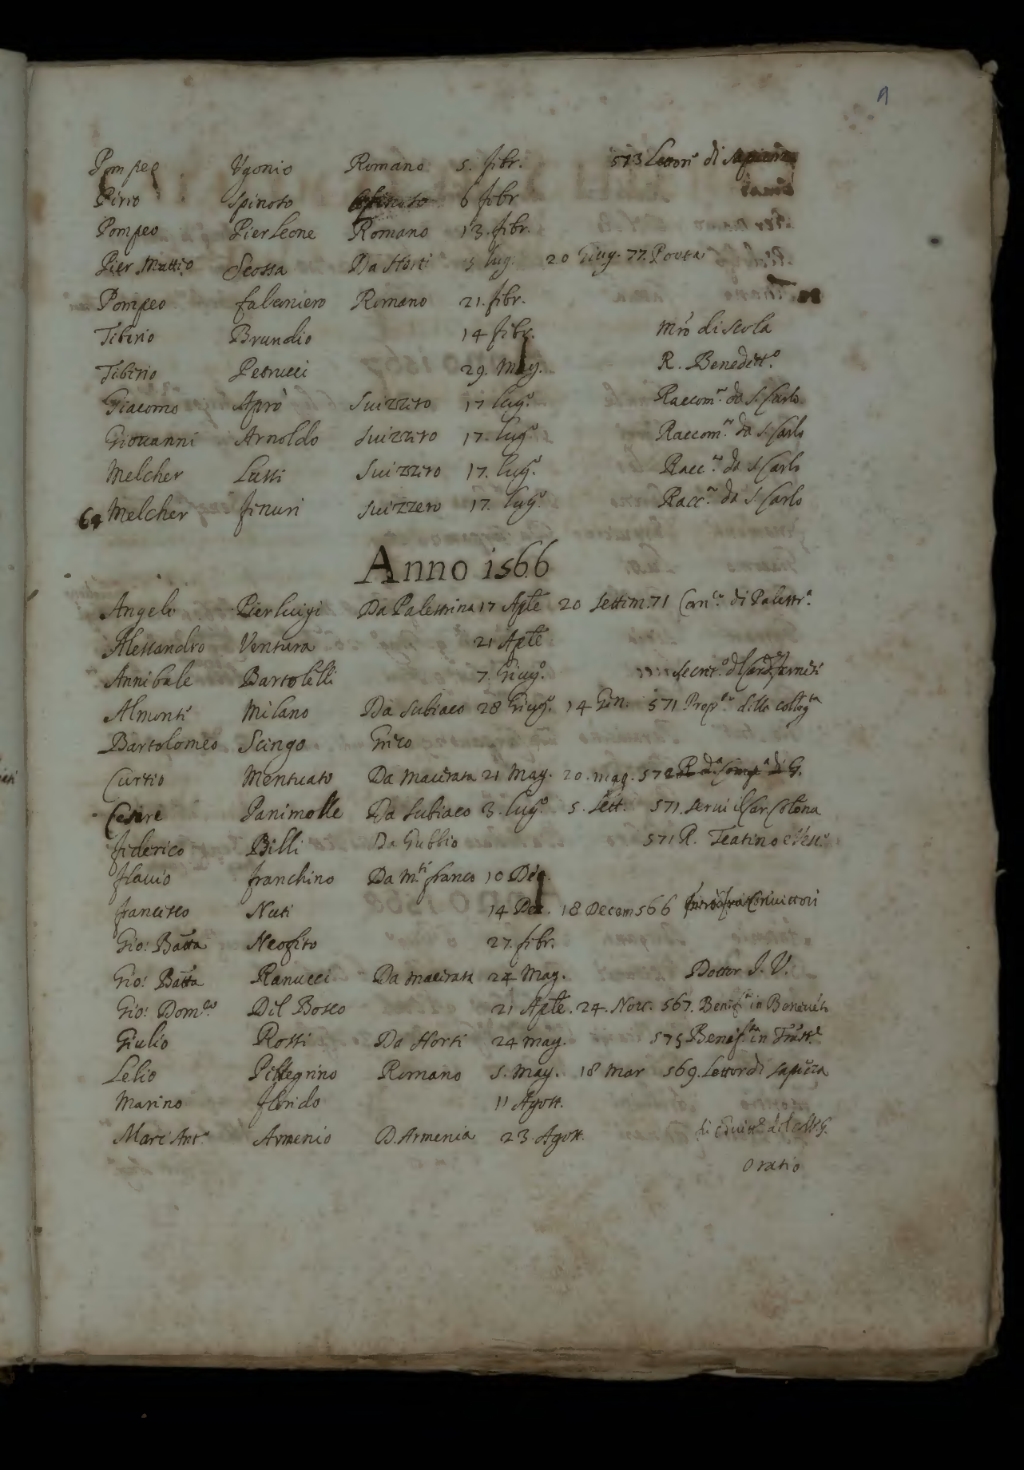 9
Pompeo Ygonio Romano 5. febr. 573 Lettore di Sapienza
Pirro Spinoto 6 febr
Pompeo Pierleone Romano 13. febr.
Pier Matteo Scossa Da Horti 3 lug. 20 Giug. 77. Poeta
Pompeo falconiero Romano 21. febr.
Tiberio Brundio 14 febr. Mro di scola
Tiberio Petrucci 29. May. R. Benedett.o
Giacomo Aprò Suizzero 17 lug.o Raccom.to da S. Carlo
Giouanni Arnoldo Suizzero 17. lug.o Raccom.to da S. Carlo
Melcher Lussi Suizzero 17. lug.o Racc.to da S. Carlo
64 Melcher Suizzero 17. lug.o Racc.to da S. Carlo
Anno 1566
Angelo Pierluigi Da Palestrina 17 Aple 20 Settem. 71 Can.co di Palestr.a
Alessandro Ventura 21 Aple
Annibale Bartolelli 7 Giug.o Secret.o d Card. farnesi
Almonte Milano Da Subiaco 28 Giug.o 14 Gen. 571. Prep.to della colleg.ta
Bartolomeo Scingo Greco
Curtio Mentuato Da Macerata 21 May. 20. mag. 572 R. d.a Comp.a di G.
Cesare Panimolle Da Subiaco 3. lug.o 5. Sett. 571. serui il Car. Colonna
federico Billi Da Gubbio 571 R. Teatino e Vesc.o
flauio franchino Da M.te franco 10 Dec.
francesco Nuti 14 Dec. 18 Decem 566 Conuittori
Gio: Batta Neofito 27. febr.
Gio: Batta Ranucci Da macerata 24 Mag. Dottor I. V.
Gio: Dom.co Del Bosco 21 Aple. 24. Nou. 567. Benef.to in Beneuēto
Giulio Rossi Da Horti 24 may. 575 Benef.to in
Lelio Pellegrino Romano 5. May. 18 Mar 569. Lettor di sapiēza
Marino florido 11 Agost.
Marc'Ant.o Armenio D'Armenia 23 Agos.
Oratio